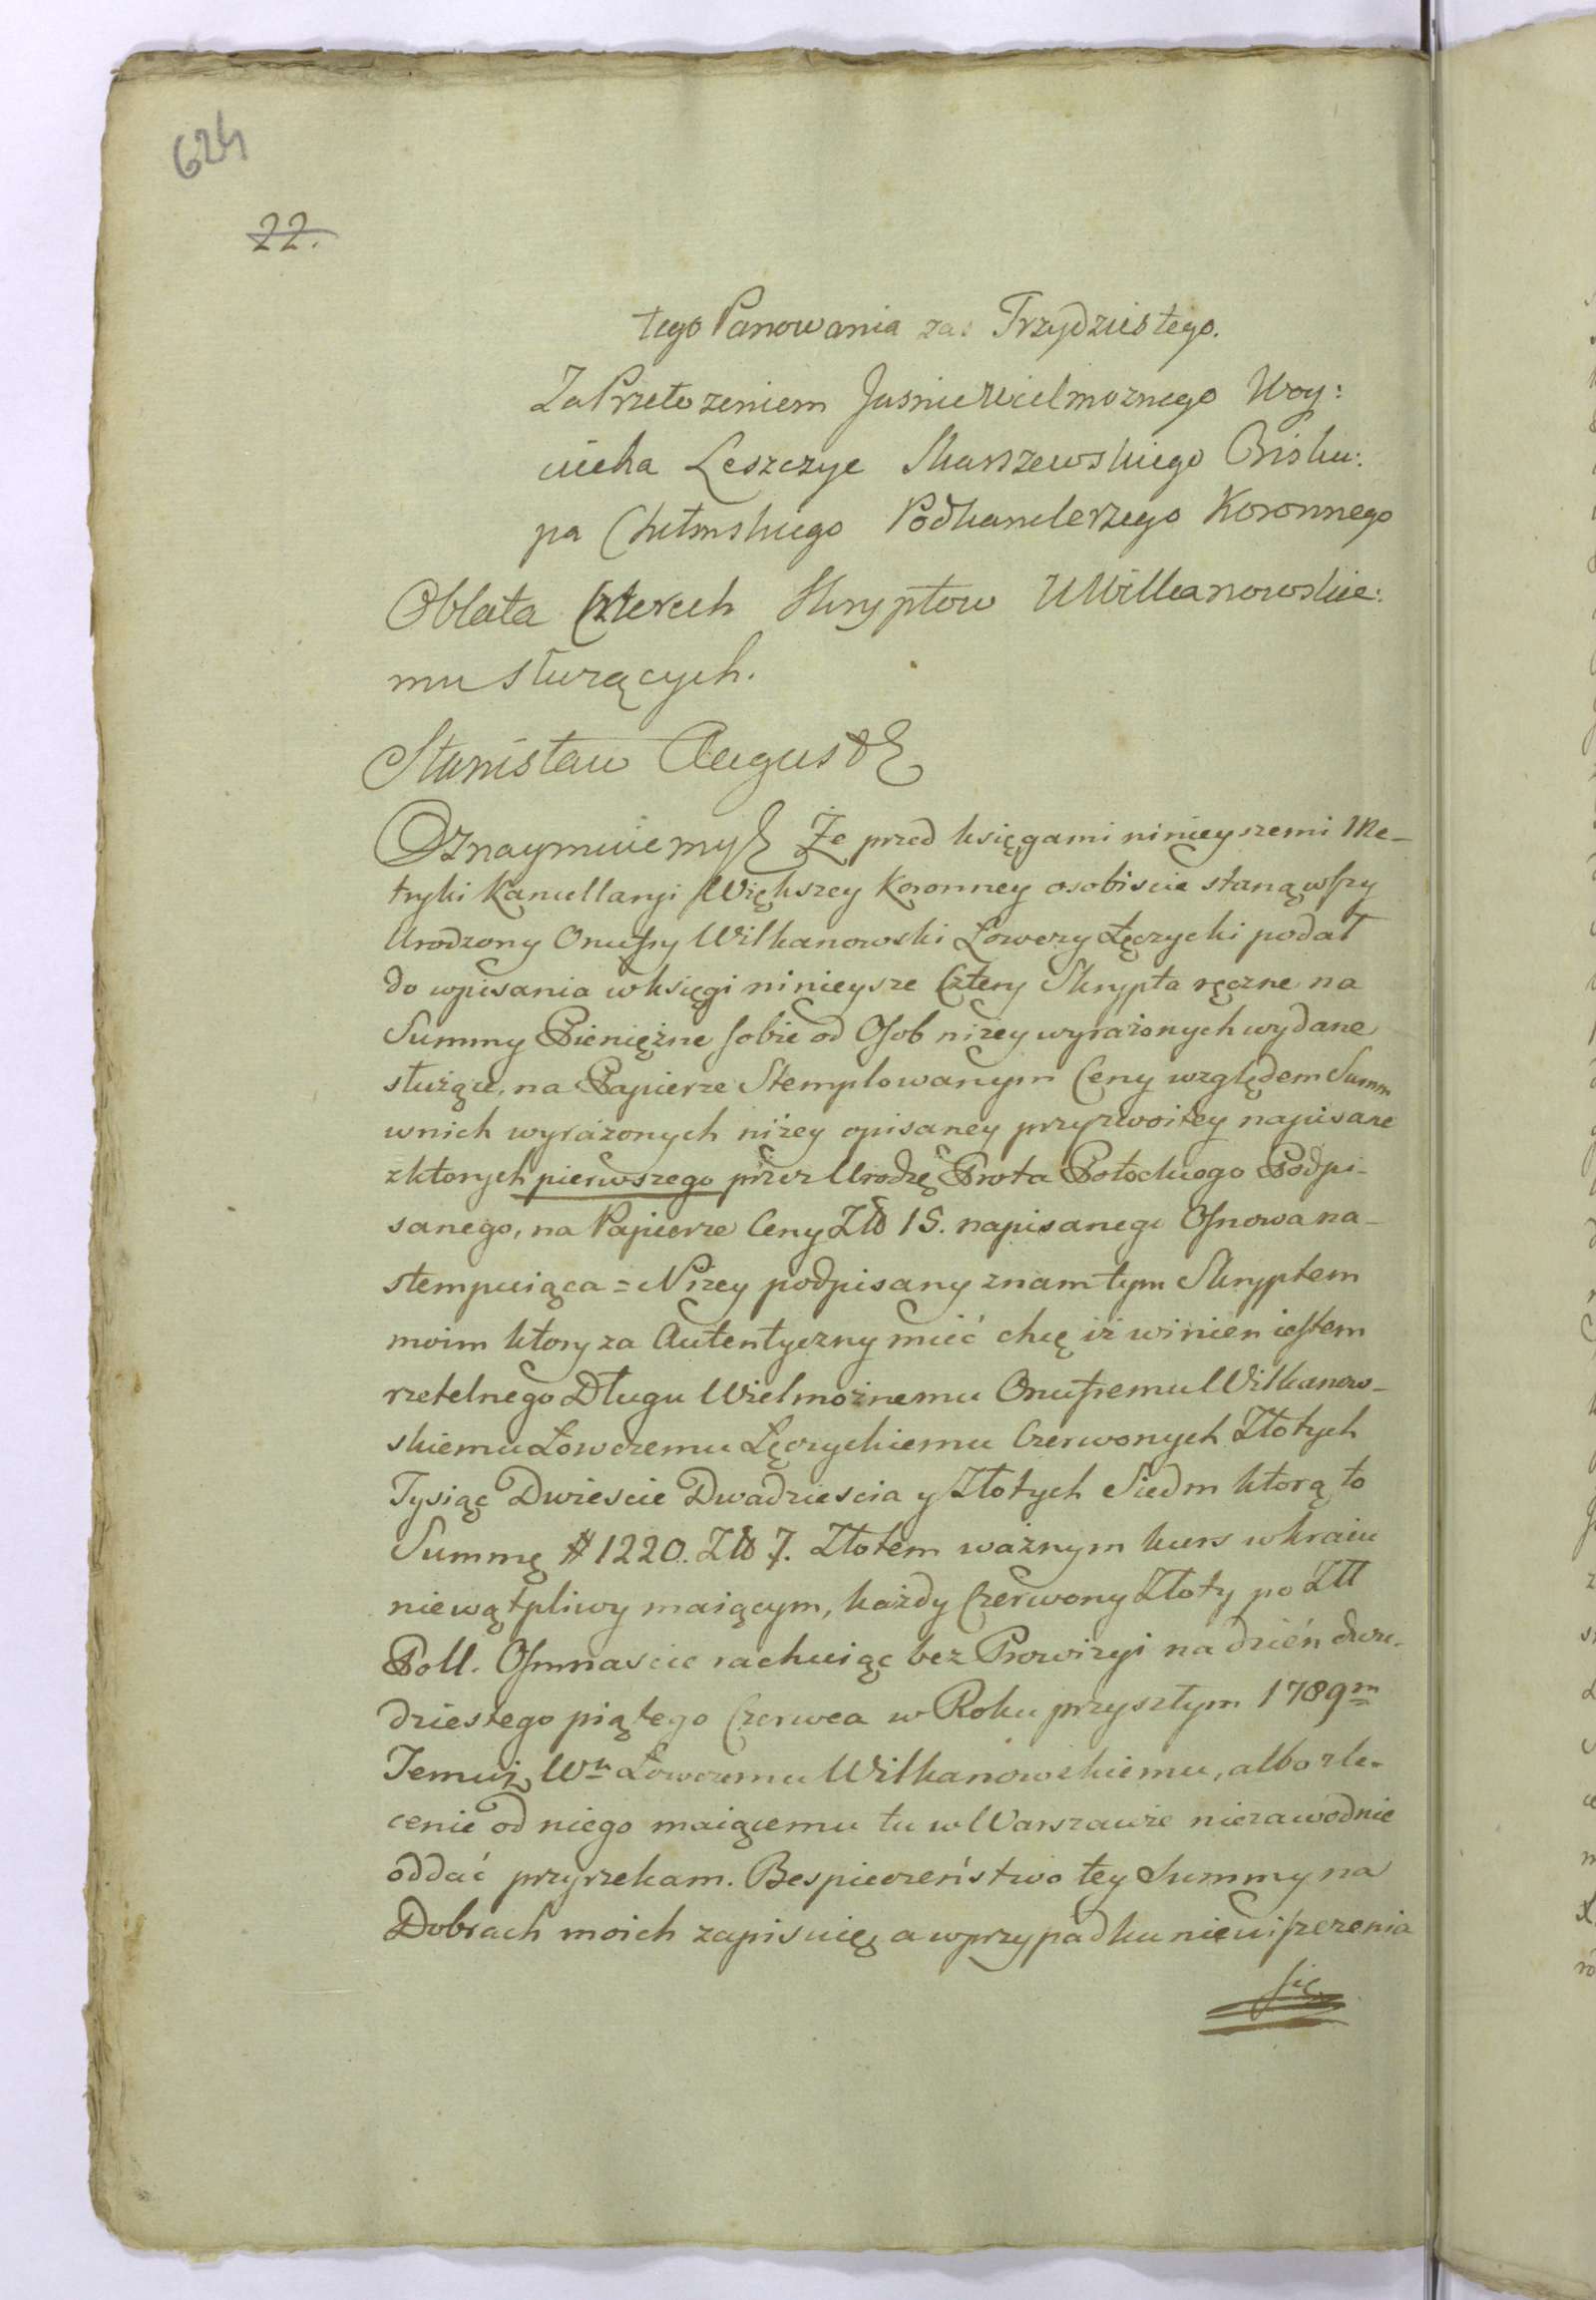 624
22.
tego Panowania zaś Trzydziestego.
Za Przełozeniem Jasnie Wielmoznego Woy:
ciecha Leszczyc Skarszewskiego Bisku:
pa Chełmskiego Podkanclerzego Koronnego
Oblata Czterech Skryptow U Wilkanowskie:
mu służących.
Stanisław August
Oznaymuiemy Że przed księgami ninieyszemi Me-
tryki Kancellaryi Większey Koronney osobiscie stanąwszy
Urodzony Onufry Wilkanowski Łowczy Łęczycki podał
do wpisania w księgi ninieysze Cztery Skrypta ręczne na
Summy Pieniężne sobie od Osob niżey wyrażonych wydane
służące, na Papierze Stemplowanym Ceny względem Summ
wnich wyrażonych niżey opisaney przyzwoitey napisane
z ktorych pierwszego przez Urodzę Prota Potockiego Podpi-
sanego, na Papierze Ceny Złł 15. napisanego Osnowa na-
stempuiąca = Niżey podpisany znam tym Skryptem
moim ktory za Autentyczny mieć chcę iż winien iestem
rzetelnego Długu Wielmożnemu Onufremu Wilkanow-
skiemu Łowczemu Łęczyckiemu Czerwonych Złotych
Tysiąc Dwiescie Dwadziescia y Złotych Siedm ktorą to
Summę # 1220. Złł 7. Złotem ważnym kurs w kraiu
niewątpliwy maiącym, każdy Czerwony Złoty po Złł
Poll. Osmnascie rachuiąc bez Prowizyi na dzień dwu-
dziestego piątego Czerwca w Roku przyszłym 1789m
Temuż Wu Łowczemu Wilkanowskiemu, albo zle-
cenie od niego maiącemu tu w Warszawie niezawodnie
oddać przyrzekam. Bespieczeństwo tey Summy na
Dobrach moich zapisuię a w przypadku nieuiszczenia
się